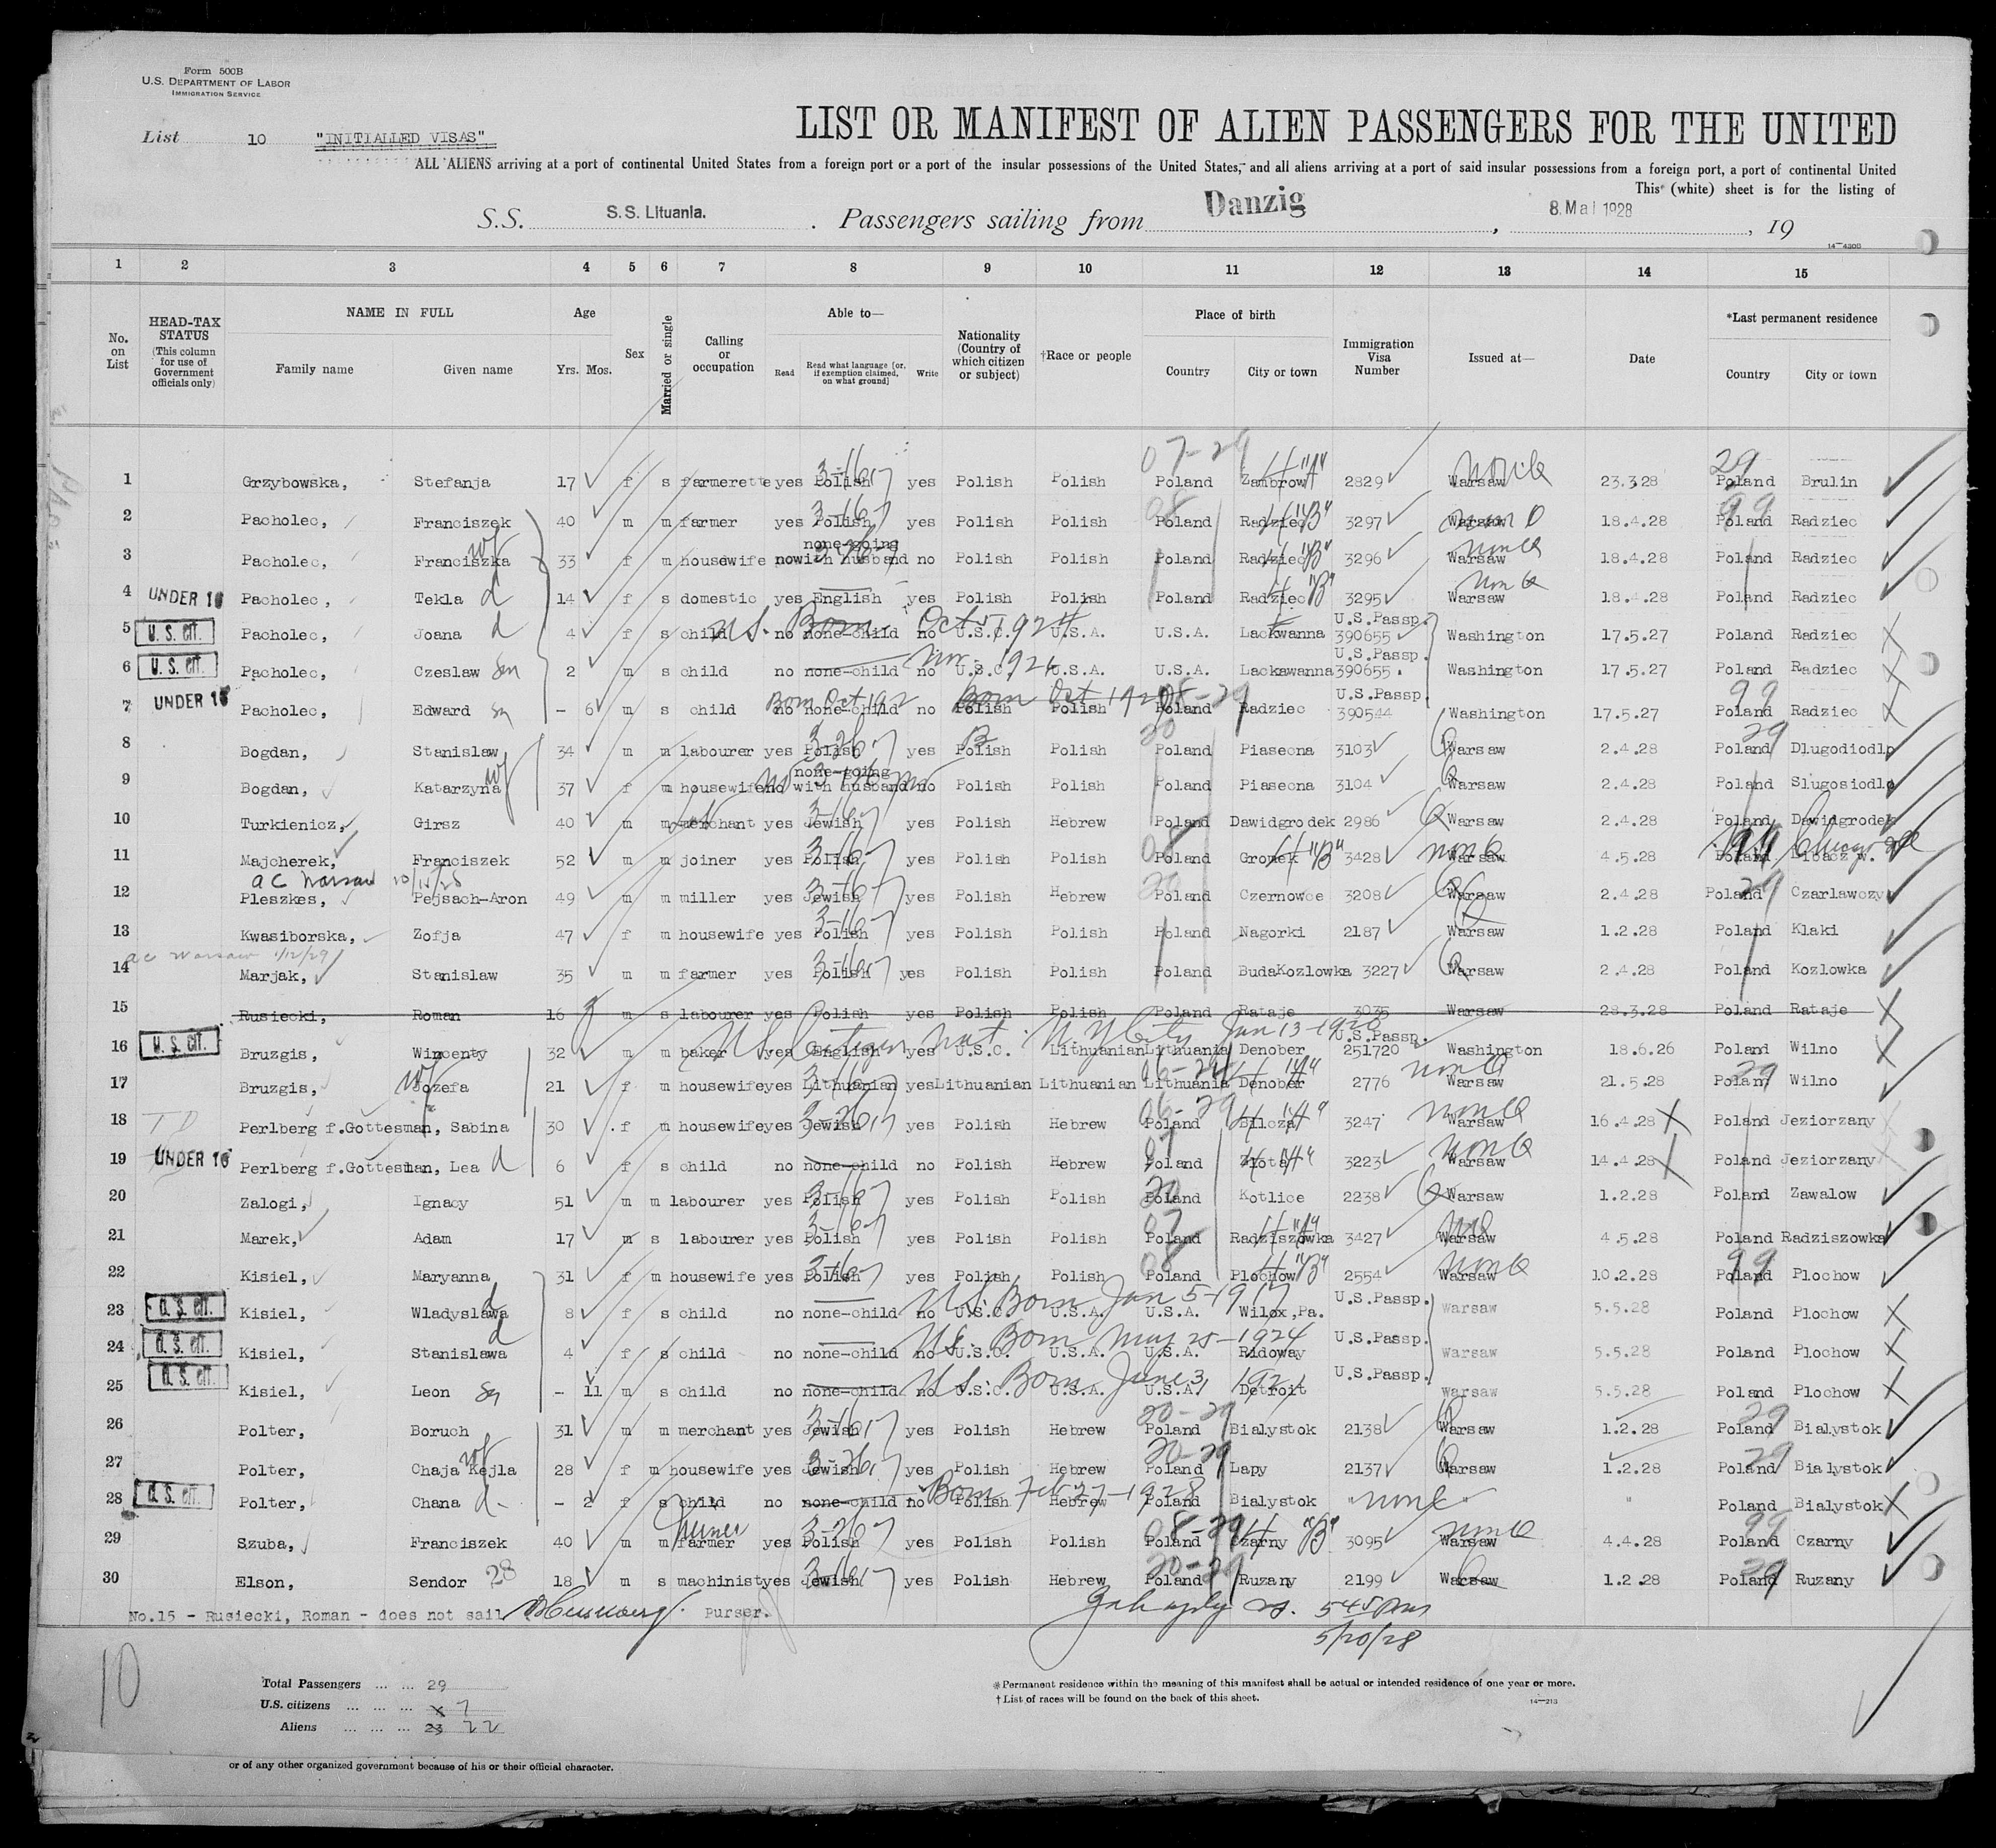 Form 500B
U.S. DEPARTMENT OF LABOR
IMMIGRATION SERVICE
List 10 "INITIALLED VISAS"
LIST OR MANIFEST OF ALIEN PASSENGERS FOR THE UNITED
ALL ALIENS arriving at a port of continental United States from a foreign port or a port of the insular possessions of the United States, and all aliens arriving at a port of said insular possessions from a foreign port, a port of continental United
This (white) sheet is for the listing of
S.S. S.S. Lituania. Passengers sailing from Danzig, 8. Mai 1928, 19
14—4300
1 2 3 4 5 6 7 8 9 10 11 12 13 14 15
No. on List HEAD-TAX STATUS (This column for use of Government officials only) NAME IN FULL Family name Given name Age Yrs. Mos. Sex Married or single Calling or occupation Able to— Read Read what language [or, if exemption claimed, on what ground] Write Nationality (Country of which citizen or subject) †Race or people Place of birth Country City or town Immigration Visa Number Issued at— Date *Last permanent residence Country City or town
07-29 29
1 Grzybowska, Stefanja 17 f s farmerette yes Polish yes Polish Polish Poland Zambrow 2829 Warsaw 23.3.28 Poland Brulin
2 Pacholec, Franciszek 40 m m farmer yes Polish yes Polish Polish Poland Radziec "B" 3297 Warsaw 18.4.28 Poland Radziec
3 Pacholec, Franciszka wf 33 f m housewife no none-going with husband no Polish Polish Poland Radziec "B" 3296 Warsaw 18.4.28 Poland Radziec
4 UNDER 16 Pacholec, Tekla d 14 f s domestic yes English yes Polish Polish Poland Radziec "B" 3295 Warsaw 18.4.28 Poland Radziec
U.S. Born Oct 1924
5 U.S. CIT. Pacholec, Joana d 4 f s child no none-child no U.S.C. U.S.A. U.S.A. Lackwanna U.S.Passp. 390655 Washington 17.5.27 Poland Radziec
6 U.S. CIT. Pacholec, Czeslaw 2 m s child no none-child no U.S.C. U.S.A. U.S.A. Lackawanna U.S.Passp. 390655. Washington 17.5.27 Poland Radziec
7 UNDER 16 Pacholec, Edward - 6 m s child no none-child no Polish Polish Poland Radziec U.S.Passp. 390544 Washington 17.5.27 Poland Radziec
8 Bogdan, Stanislaw 34 m m labourer yes Polish yes Polish Polish Poland Piaseona 3103 Warsaw 2.4.28 Poland Dlugodiodlp
9 Bogdan, Katarzyna wf 37 f m housewife no none-going with husband no Polish Polish Poland Piaseona 3104 Warsaw 2.4.28 Poland Slugosiodlo
10 Turkienicz, Girsz 40 m m merchant yes Jewish yes Polish Hebrew Poland Dawidgrodek 2986 Warsaw 2.4.28 Poland Dawidgrodek
11 Majcherek, Franciszek 52 m m joiner yes Polish yes Polish Polish Poland Gromek "B" 3428 Warsaw 4.5.28 Poland Chicago
ac Warsaw 10/15/28
12 Pleszkes, Pejsach-Aron 49 m m miller yes Jewish yes Polish Hebrew Poland Czernowce 3208 Warsaw 2.4.28 Poland Czarlawczy
13 Kwasiborska, Zofja 47 f m housewife yes Polish yes Polish Polish Poland Nagorki 2187 Warsaw 1.2.28 Poland Klaki
ac Warsaw 1/12/29
14 Marjak, Stanislaw 35 m m farmer yes Polish yes Polish Polish Poland BudaKozlowka 3227 Warsaw 2.4.28 Poland Kozlowka
15 Rusiecki, Roman 16 m s labourer yes Polish yes Polish Polish Poland Rataje 3035 Warsaw 28.3.28 Poland Rataje
US Citizen Nat. N.Y. City Jan 13-1926
16 U.S. CIT. Bruzgis, Wincenty 32 m m baker yes English yes U.S.C. Lithuanian Lithuania Denober U.S.Passp. 251720 Washington 18.6.26 Poland Wilno
17 Bruzgis, Jozefa wf 21 f m housewife yes Lithuanian yes Lithuanian Lithuanian Lithuania Denober 2776 Warsaw 21.5.28 Poland Wilno
18 Perlberg f.Gottesman, Sabina 30 f m housewife yes Jewish yes Polish Hebrew Poland Bilcza 3247 Warsaw 16.4.28 Poland Jeziorzany
19 UNDER 16 Perlberg f.Gottesman, Lea d 6 f s child no none-child no Polish Hebrew Poland Zlota 3223 Warsaw 14.4.28 Poland Jeziorzany
20 Zalogi, Ignacy 51 m m labourer yes Polish yes Polish Polish Poland Kotlice 2238 Warsaw 1.2.28 Poland Zawalow
21 Marek, Adam 17 m s labourer yes Polish yes Polish Polish Poland Radziszowka 3427 Warsaw 4.5.28 Poland Radziszowka
22 Kisiel, Maryanna 31 f m housewife yes Polish yes Polish Polish Poland Plochow "B" 2554 Warsaw 10.2.28 Poland Plochow
US. Born Jan 5-1917
23 U.S. CIT. Kisiel, Wladyslawa d 8 f s child no none-child no U.S.C. U.S.A. U.S.A. Wilox,Pa. U.S.Passp. Warsaw 5.5.28 Poland Plochow
US. Born May 25-1924
24 U.S. CIT. Kisiel, Stanislawa d 4 f s child no none-child no U.S.C. U.S.A. U.S.A. Ridoway U.S.Passp. Warsaw 5.5.28 Poland Plochow
US. Born June 3,
25 U.S. CIT. Kisiel, Leon - 11 m s child no none-child no U.S.C. U.S.A. U.S.A. Detroit U.S.Passp. Warsaw 5.5.28 Poland Plochow
26 Polter, Boruch 31 m m merchant yes Jewish yes Polish Hebrew Poland Bialystok 2138 Warsaw 1.2.28 Poland Bialystok
27 Polter, Chaja Kejla wf 28 f m housewife yes Jewish yes Polish Hebrew Poland Lapy 2137 Warsaw 1.2.28 Poland Bialystok
Born Feb 27-1928
28 U.S. CIT. Polter, Chana d - 2 f s child no none-child no Polish Hebrew Poland Bialystok " none " " Poland Bialystok
29 Szuba, Franciszek 40 m m farmer yes Polish yes Polish Polish Poland Czarny "B" 3095 Warsaw 4.4.28 Poland Czarny
30 Elson, Sendor 28 18 m s machinist yes Jewish yes Polish Hebrew Poland Ruzany 2199 Warsaw 1.2.28 Poland Ruzany
No.15 - Rusiecki, Roman - does not sail Purser.
5/20/28
10
Total Passengers ... ... 29
U.S. citizens ... ... ... 7
Aliens ... ... ... 23 22
*Permanent residence within the meaning of this manifest shall be actual or intended residence of one year or more.
†List of races will be found on the back of this sheet.
14—213
or of any other organized government because of his or their official character.